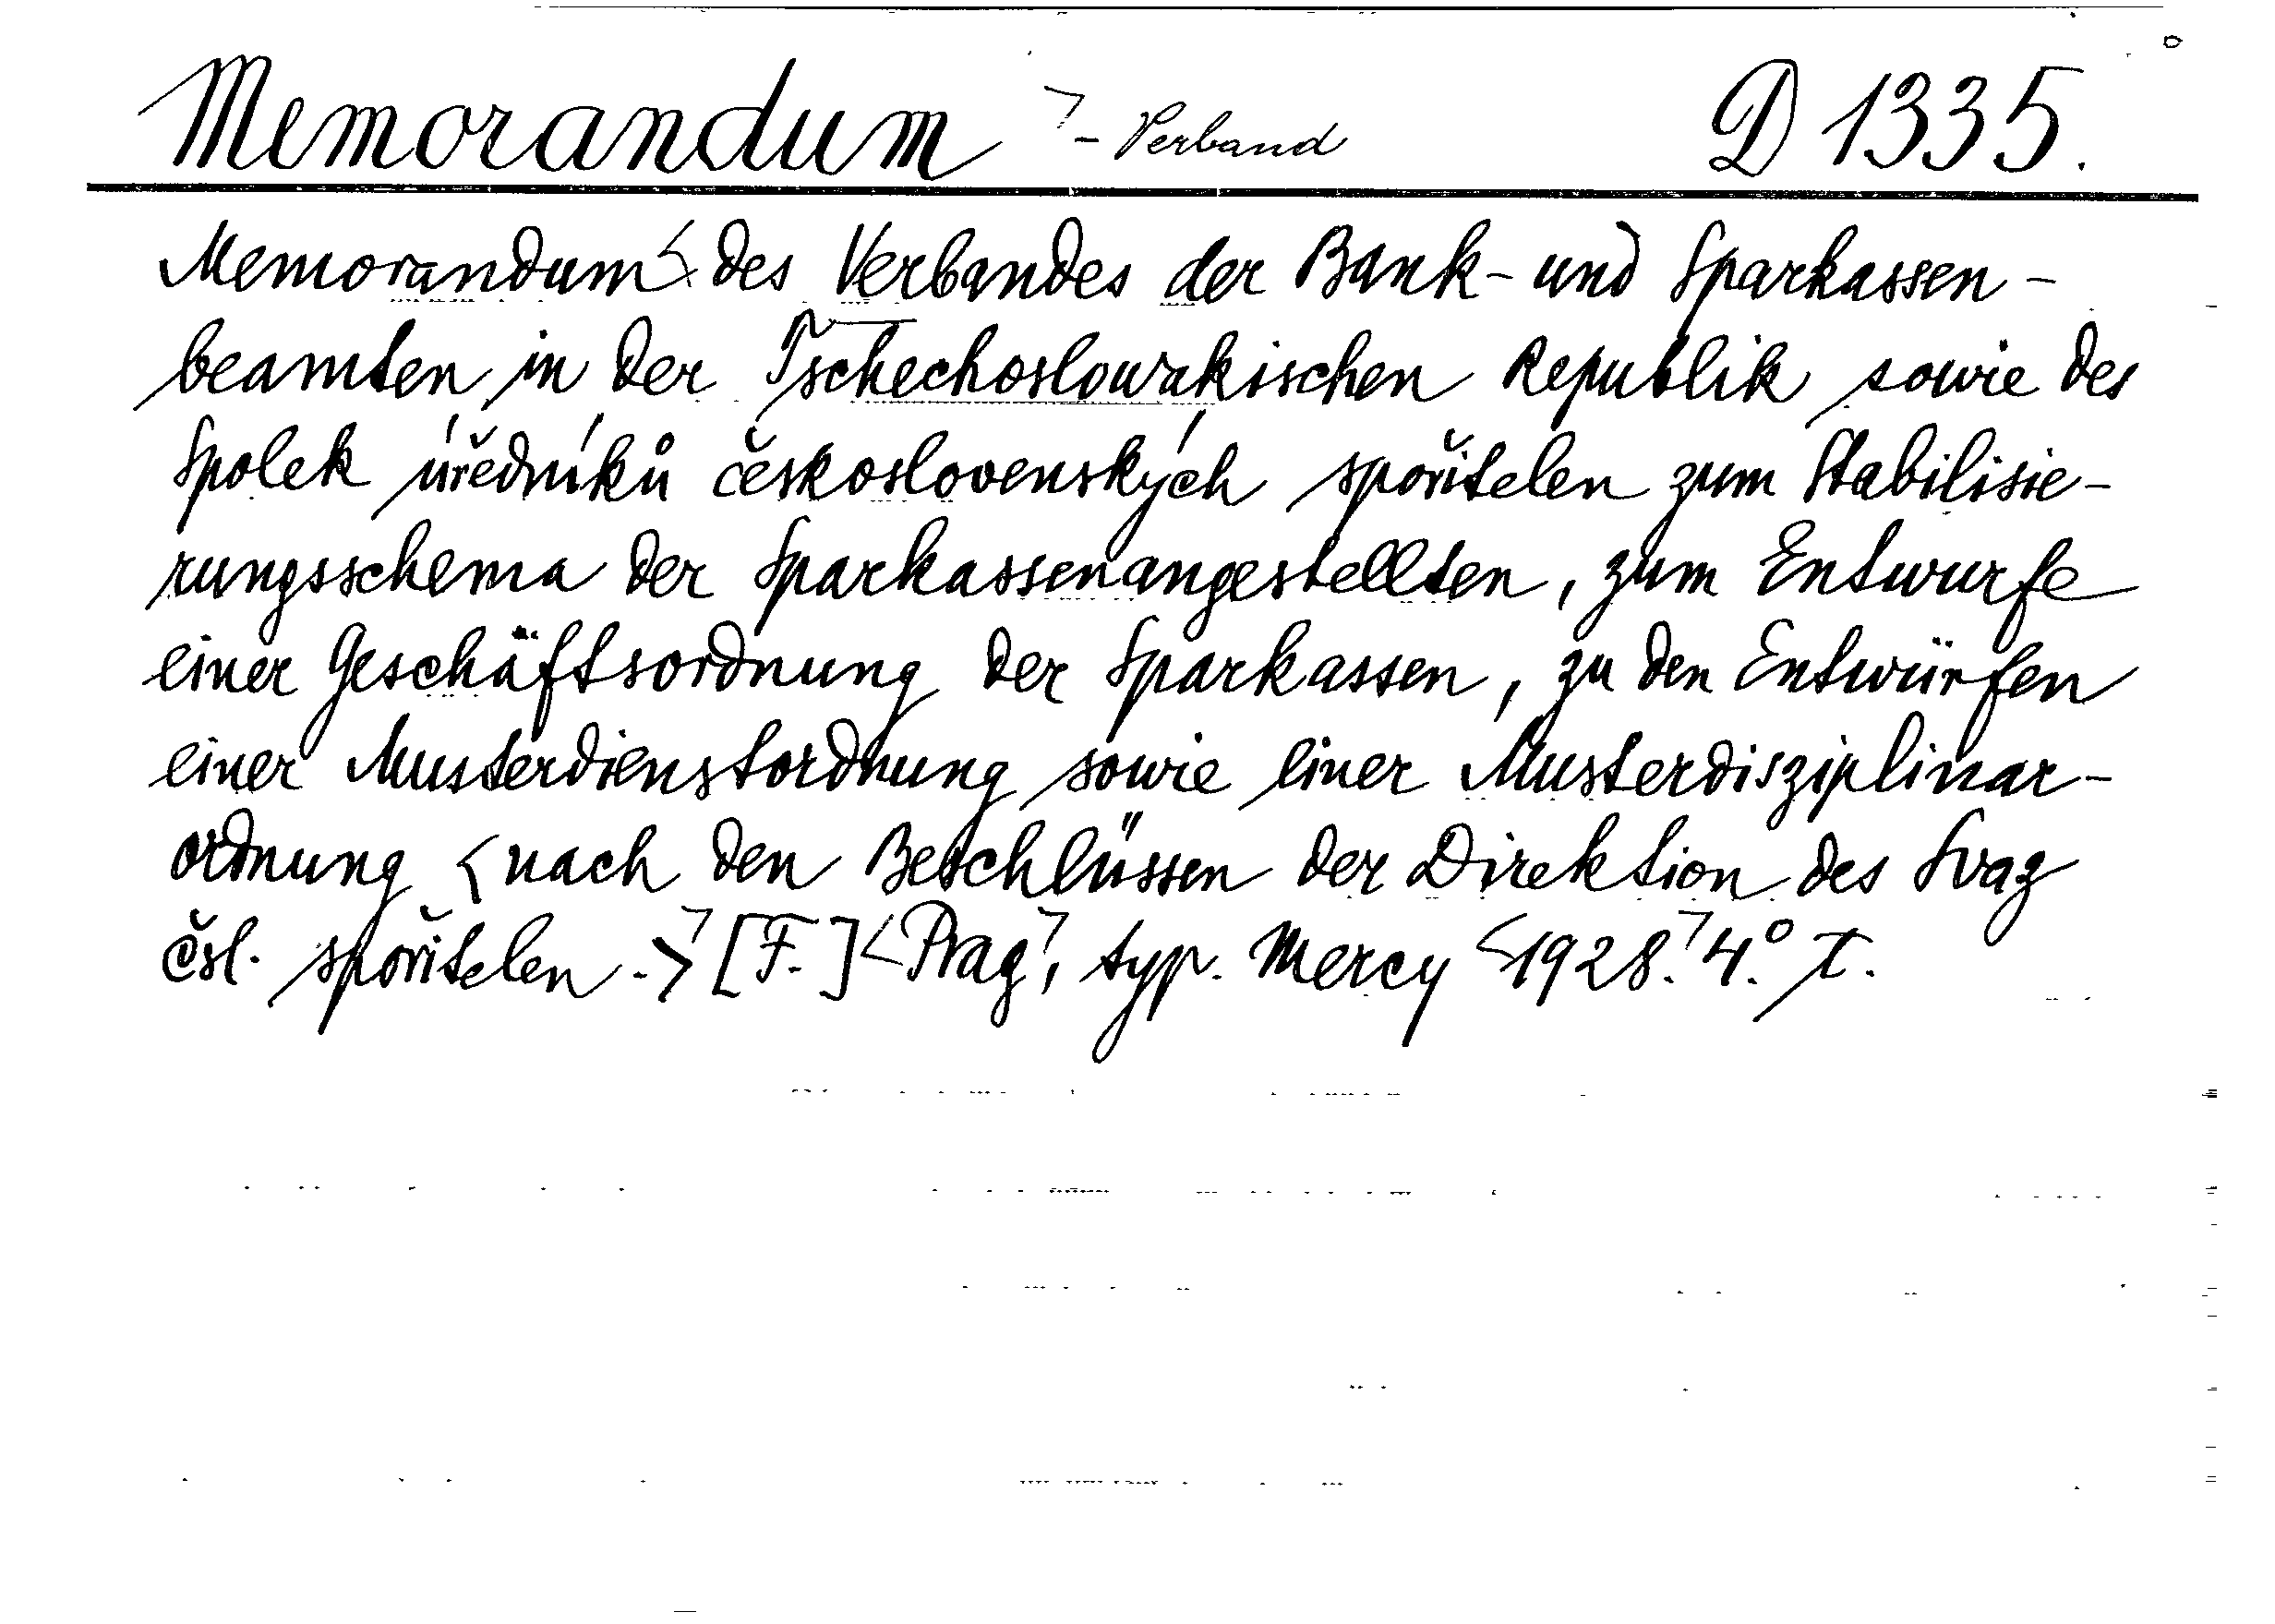 Memorandum - Verband D 1335.
Memorandum des Verbandes der Bank- und Sparkassen-
beamten in der Tschechoslowakischen Republik sowie des
Spolek úředníků československých spořitelen zum Stabilisie-
rungsschema der Sparkassenangestellten, zum Entwurfe
einer Geschäftsordnung der Sparkassen, zu den Entwürfen
einer Musterdienstordnung sowie einer Musterdisziplinar-
ordnung <nach den Beschlüssen der Direktion des Svaz
čsl. spořitelen.> [F.] <Prag>, typ. Mercy <1928.> 4.° T.